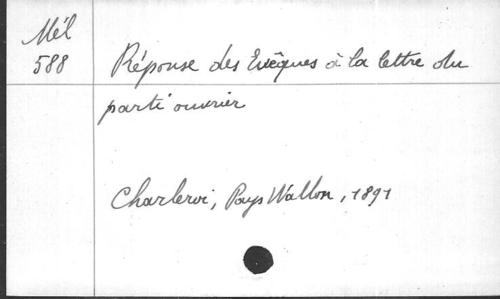 Mél
588
Réponse des Evêques à la lettre du
parti ouvrier
Charleroi, Pays Wallon, 1891